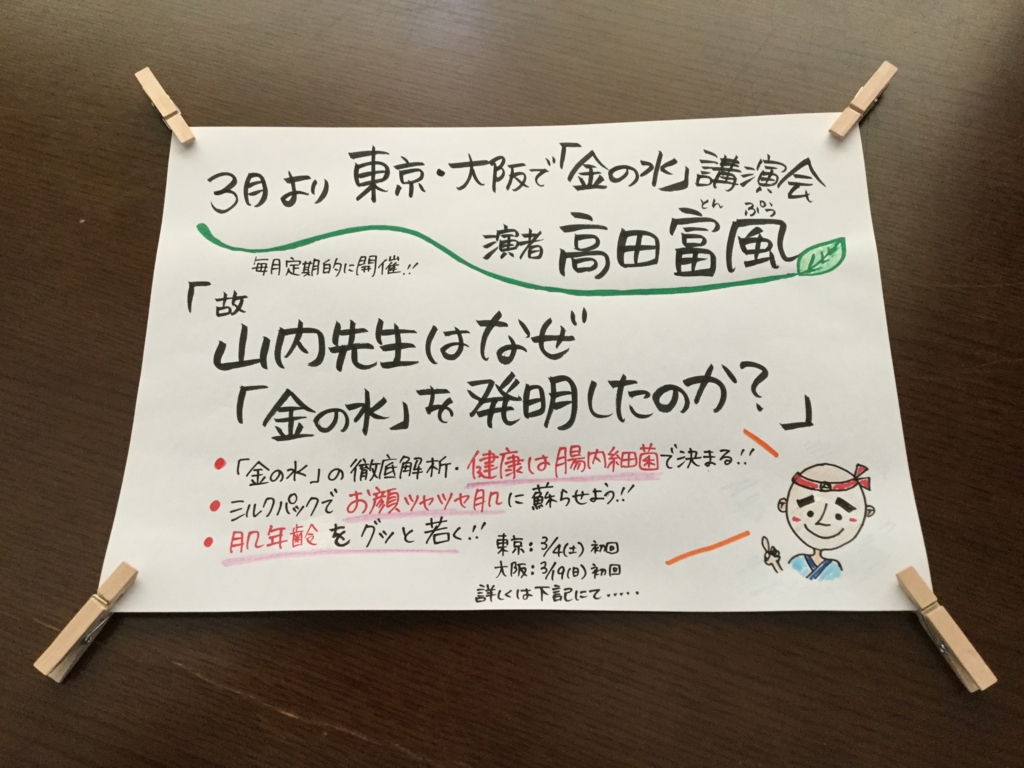 3月より 東京・大阪で「金の水」講演会
演者 高田富風
とん ぷう
毎月定期的に開催!!
「故
山内先生はなぜ
「金の水」を発明したのか?」
• 「金の水」の徹底解析・健康は腸内細菌で決まる!!
• ミルクパックでお顔ツヤツヤ肌に蘇らせよう!!
• 肌年齢をグッと若く!!
東京:3/4(土)初回
大阪:3/19(日)初回
詳しくは下記にて‥‥‥